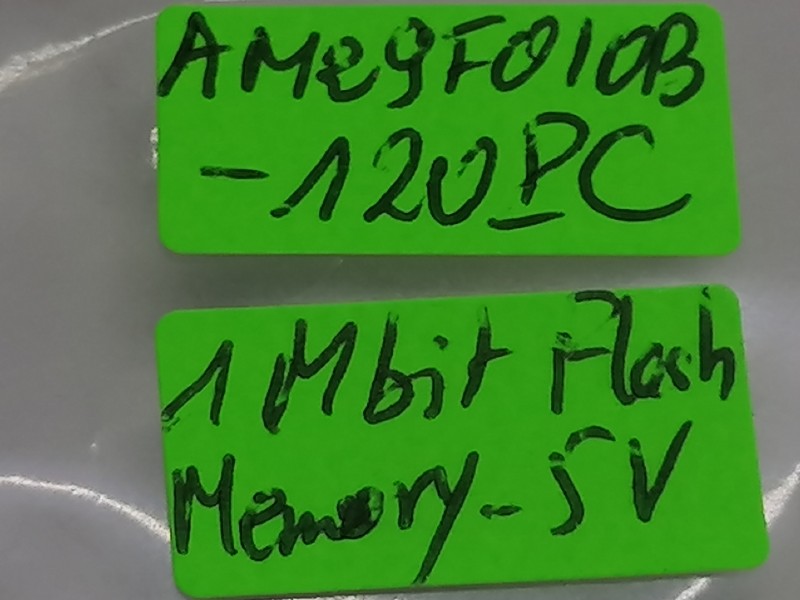 AM29F010B
-120PC
1Mbit Flash
Memory-5V